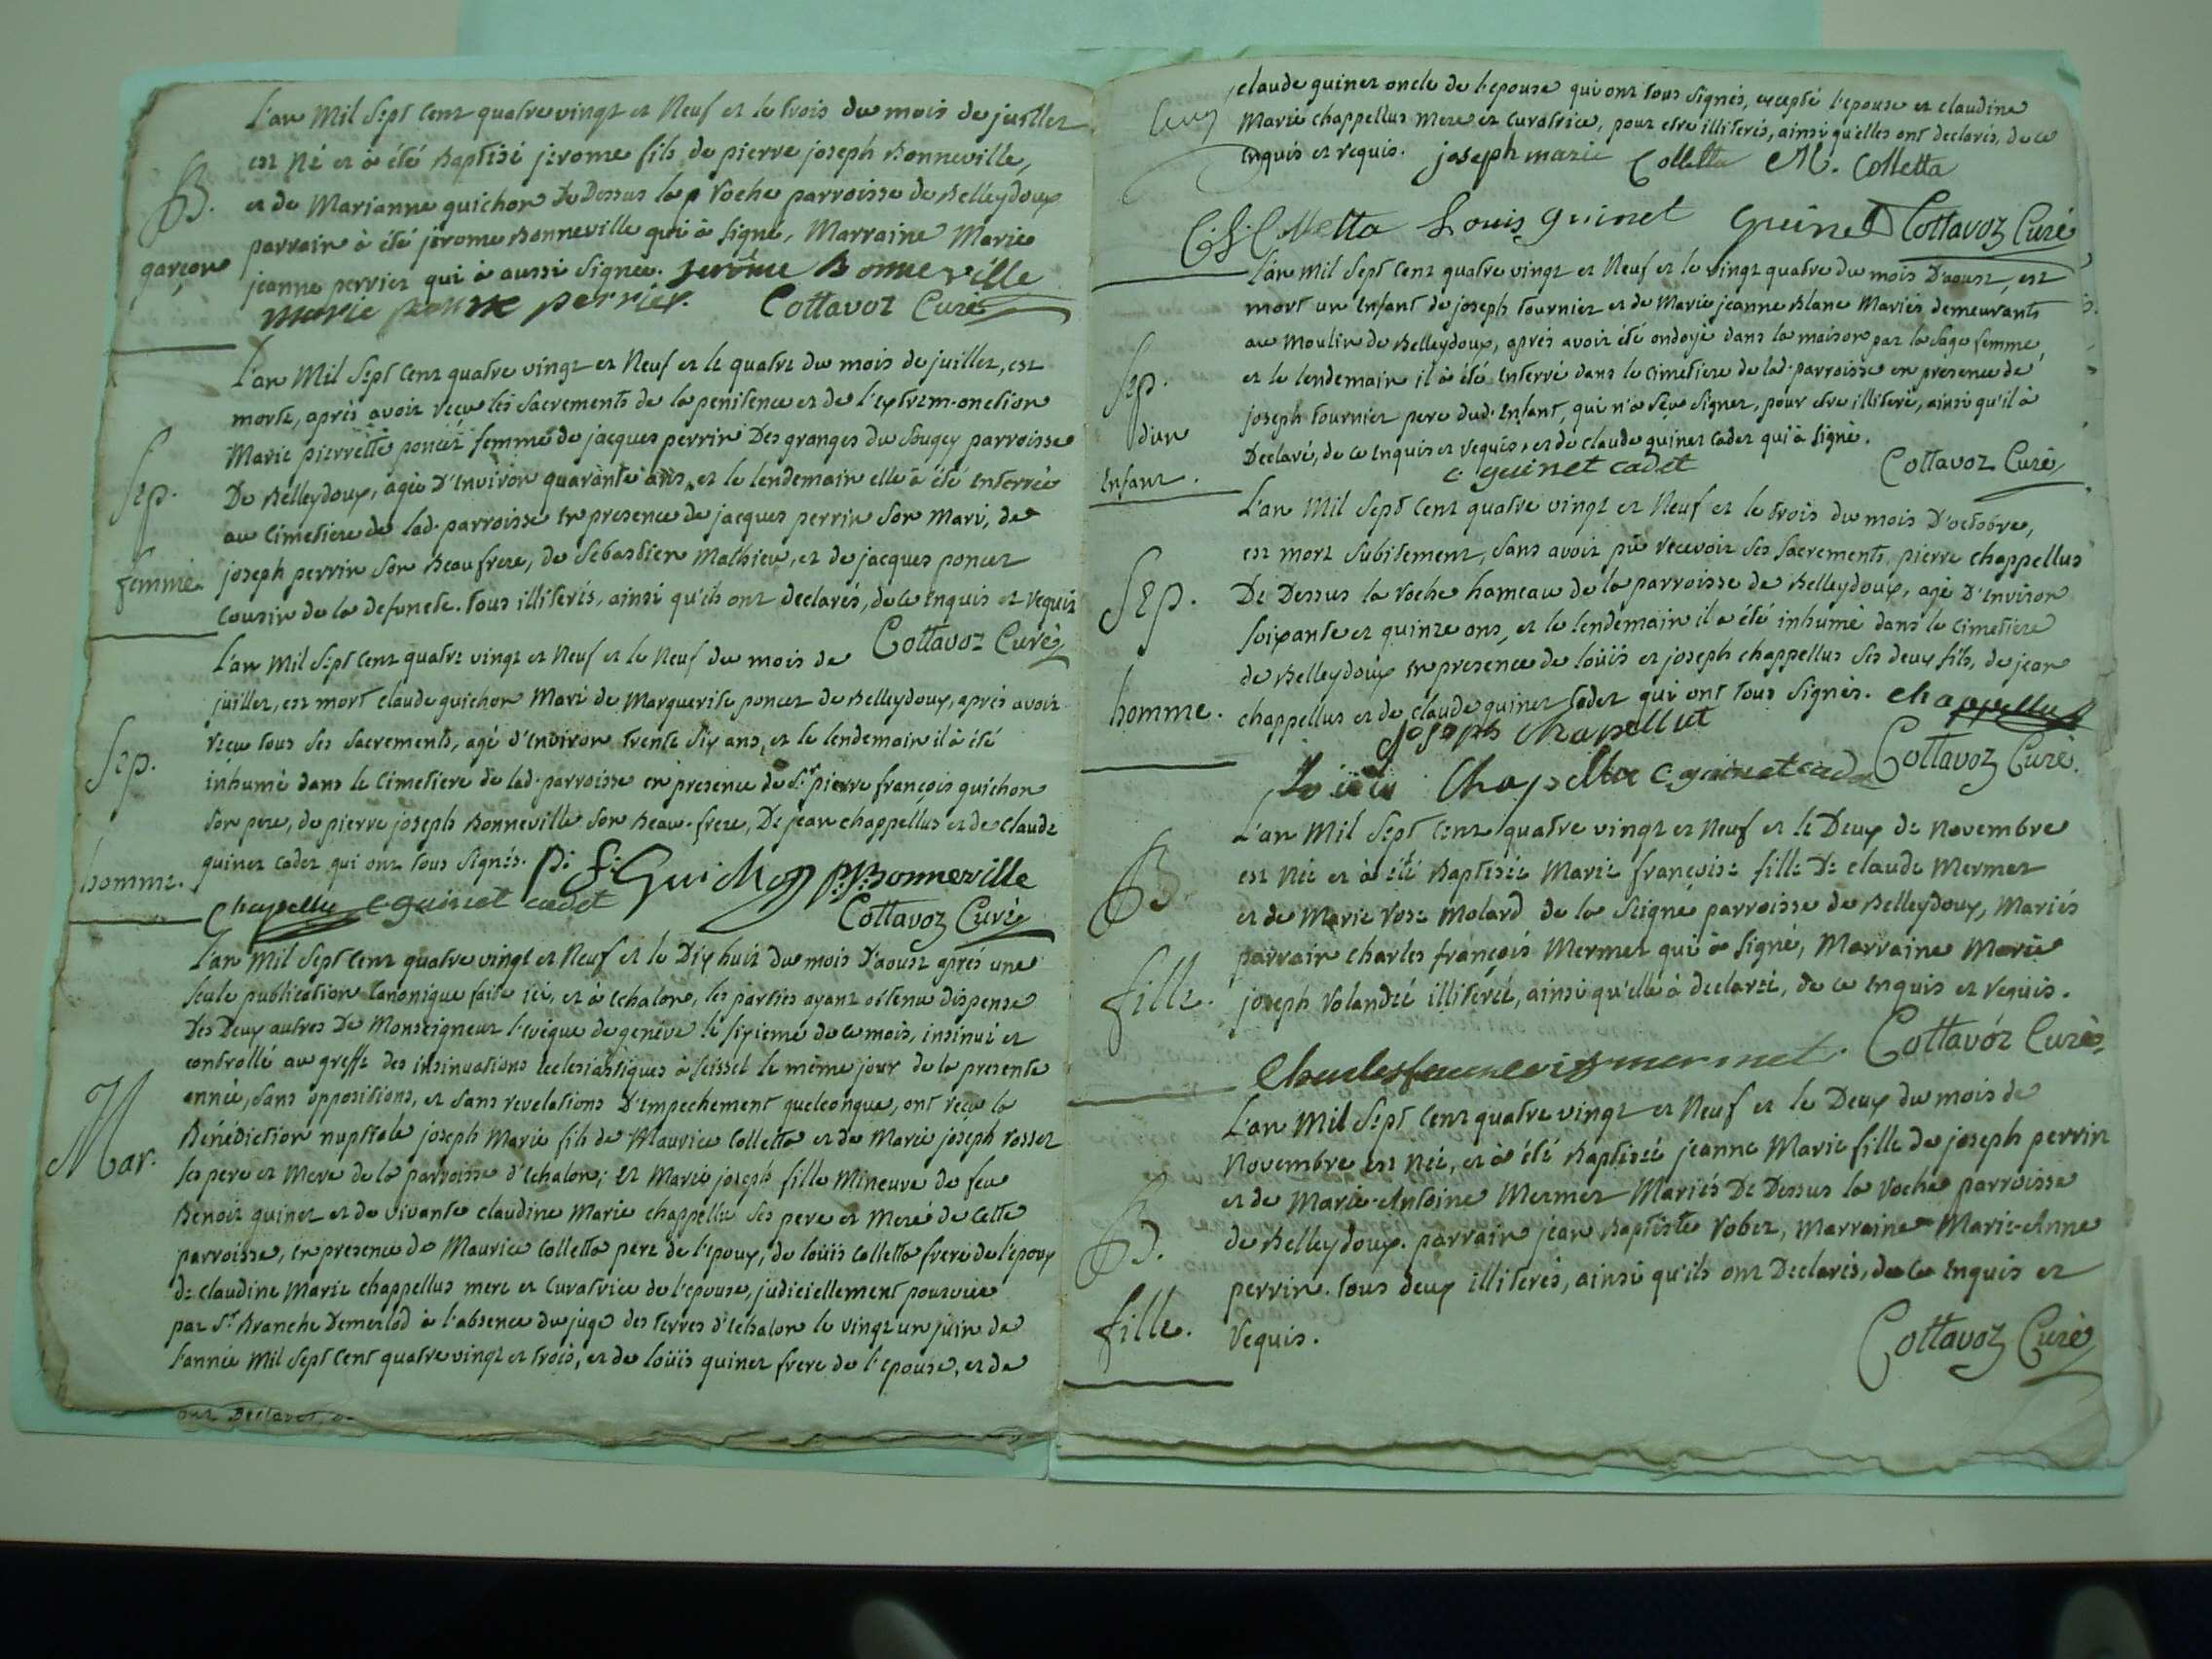 L'an Mil Sept Cent quatre vingt et Neuf et le trois du mois de juillet
est Né et à été Baptisé jerome fils de pierre joseph Bonneville,
B. et de Marianne guichon De Dessus la roche parroisse de Belleydoux
parrain à été jerome Bonneville qui à signé, Marraine Marie
garçon jeanne perrier qui à aussi signée. jerôme Bonneville
marie jeanne perrier. Cottavoz Curé
L'an Mil Sept Cent quatre vingt et Neuf et le quatre du mois de juillet, est
morte, après avoir reçu les Sacrements de la penitence et de l'extrem-onction
Marie pierrette poncet femme de jacques perrin Des granges du Sougey parroisse
Sep. De Belleydoux, agée D'environ quarante ans, et le lendemain elle à été Enterrée
au Cimetiere de lad. parroisse en presence de jacques perrin son Mari, de
joseph perrin son Beaufrere, de Sebastien Mathieu, et de jacques poncet
femme. cousin de la defuncte. tous illiterés, ainsi qu'ils ont declarés, de ce Enquis et requis
Cottavoz Curé
L'an Mil Sept Cent quatre vingt et Neuf et le Neuf du mois de
juillet, est mort claude guichon Mari de Marguerite poncet de Belleydoux, après avoir
reçu tous ses sacrements, agé d'environ trente six ans, et le lendemain il à été
Sep. inhumé dans le Cimetiere de lad. parroisse en presence de Sr. pierre françois guichon
son pere, de pierre joseph Bonneville son Beau-frere, De jean chappellus et de claude
homme. guinet cadet qui ont tous signés. p: f: Guichon P:J:Bonneville
Chapellu c guinet cadet Cottavoz Curé
L'an Mil Sept Cent quatre vingt et Neuf et le Dix huit du mois D'aoust après une
seule publication Canonique faite ici, et à Echalon, les parties ayant obtenu dispense
Des Deux autres De Monseigneur l'evêque de genève le sixieme de ce mois, insinué et
controllé au greffe des insinuations Ecclesiastiques à Seissel le même jour de la presente
année, sans oppositions, et sans revelations D'empechement quelconque, ont reçu la
Mar. Bénédiction nuptiale joseph Marie fils de Maurice Colletta et de Marie joseph rosset
ses pere et Mere de la parroisse d'Echalon; Et Marie joseph fille Mineure de feu
Benoit guinet et de vivante claudine Marie chappellu ses pere et Meré de Cette
parroisse, en presence de Maurice Colletta pere de l'epoux, de loüis Colletta frere de l'epoux
de claudine Marie chappellus mere et Curatrice de l'epouse, judiciellement pourvüe
par Sr. Branche Demerlod à l'absence du juge des terres d'Echalon le vingt un juin de
l'année Mil Sept Cent quatre vingt et trois, et de loüis guinet frere de l'epouse, et de
ont Declarés, de
claude guinet oncle de l'epouse qui ont tous signés, excepté l'epouse et claudine
Marie chappellus Mere et Curatrice, pour etre illiterés, ainsi qu'elles ont declarés, de ce
Enquis et requis. joseph marie Colletta M. Colletta
Colletta Louis guinet guinet Cottavoz Curé
L'an Mil Sept Cent quatre vingt et Neuf et le vingt quatre du mois D'aoust, est
mort un Enfant de joseph tournier et de Marie jeanne Blanc Mariés demeurants
au Moulin de Belleydoux, après avoir été ondoyé dans la maison par la sage femme,
Sep. et le lendemain il à été Enterré dans le Cimetiere de lad. parroisse en presence de
d'un joseph tournier pere dud. Enfant, qui n'a sçu signer, pour etre illiteré, ainsi qu'il à
Enfant. Declaré, de ce Enquis et requis, et de claude guinet cadet qui à signé.
c guinet cadet Cottavoz Curé
L'an Mil Sept Cent quatre vingt et Neuf et le trois du mois D'octobre,
est mort subitement, sans avoir pu recevoir ses sacrements, pierre chappellus
Sep. De Dessus la roche hameau de la parroisse de Belleydoux, agé D'environ
soixante et quinze ans, et le lendemain il a été inhumé dans le Cimetiere
de Belleydoux en presence de loüis et joseph chappellus ses deux fils, de jean
homme. chappellus et de claude guinet cadet qui ont tous signés. Chappellus
joseph chapellut
Loüis Chapellu c guinet cadet Cottavoz Curé.
L'an Mil Sept Cent quatre vingt et Neuf et le Deux de Novembre
est Née et à été Baptisée Marie françoise fille De claude Mermet
B. et de Marie rose Molard de la Seigne parroisse de Belleydoux, Mariés
parrain charles françois Mermet qui à signé, Marraine Marie
fille. joseph rolandée illiterée, ainsi qu'elle à declarée, de ce Enquis et requis.
Charles francois mermet. Cottavoz Curé
L'an Mil Sept Cent quatre vingt et Neuf et le Deux du mois de
Novembre est Née, et à été Baptisée jeanne Marie fille de joseph perrin
et de Marie-Antoine Mermet Mariés De Dessus la roche parroisse
B. de Belleydoux. parrain jean Baptiste robez, marraine Marie-Anne
perrin. tous deux illiterés, ainsi qu'ils ont Declarés, de ce Enquis et
fille. requis.
Cottavoz Curé